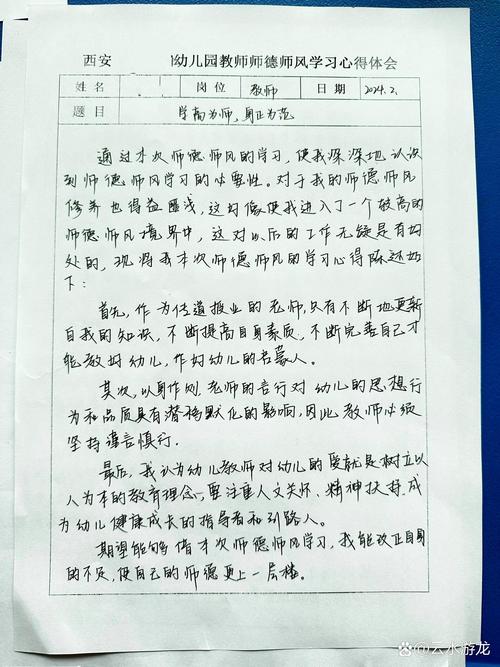 西安 幼儿园教师师德师风学习心得体会
姓名 岗位 教师 日期 2024.2.
题目 学高为师，身正为范
通过本次师德师风的学习，使我深深地认识
到师德师风学习的必要性。对于我的师德师风
修养也得益匪浅，这好像使我进入了一个较高的
师德师风境界中，这对以后的工作无疑是有好
处的，现将我本次师德师风的学习心得陈述如
下：
首先，作为传道授业的老师，只有不断地更新
自我的知识，不断提高自身素质，不断完善自己才
能教好幼儿，作好幼儿的启蒙人。
其次，以身作则，老师的言行对幼儿的思想行
为和品质具有潜移默化的影响，因此教师必须
坚持谨言慎行.
最后，我认为幼儿教师对幼儿的爱就是树立以
人为本的教育理念，要注重人文关怀、精神扶持，成
为幼儿健康成长的指导者和引路人。
期望能够借本次师德师风学习，我能改正自身
的不足，使自己的师德更上一层楼。
云水游龙